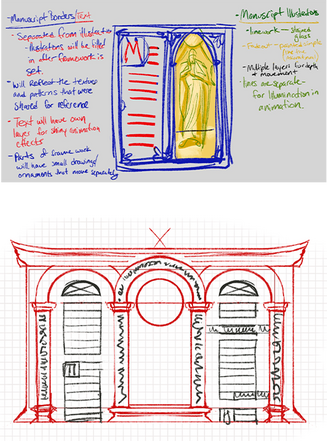 - Manuscript borders/Text
- Separated from illustration
- illustrations will be filled
in after framework is
set.
- Will reflect the textures
and patterns that were
shared for reference
- Text will have own
layer for shiny animation
effects
- Parts of framework
will have small drawings/
ornaments that move separately
- Manuscript Illustrations
- linework - stained
glass
- Multiple layers for depth
+ movement
- lines are separate -
for illumination in
animation.
M